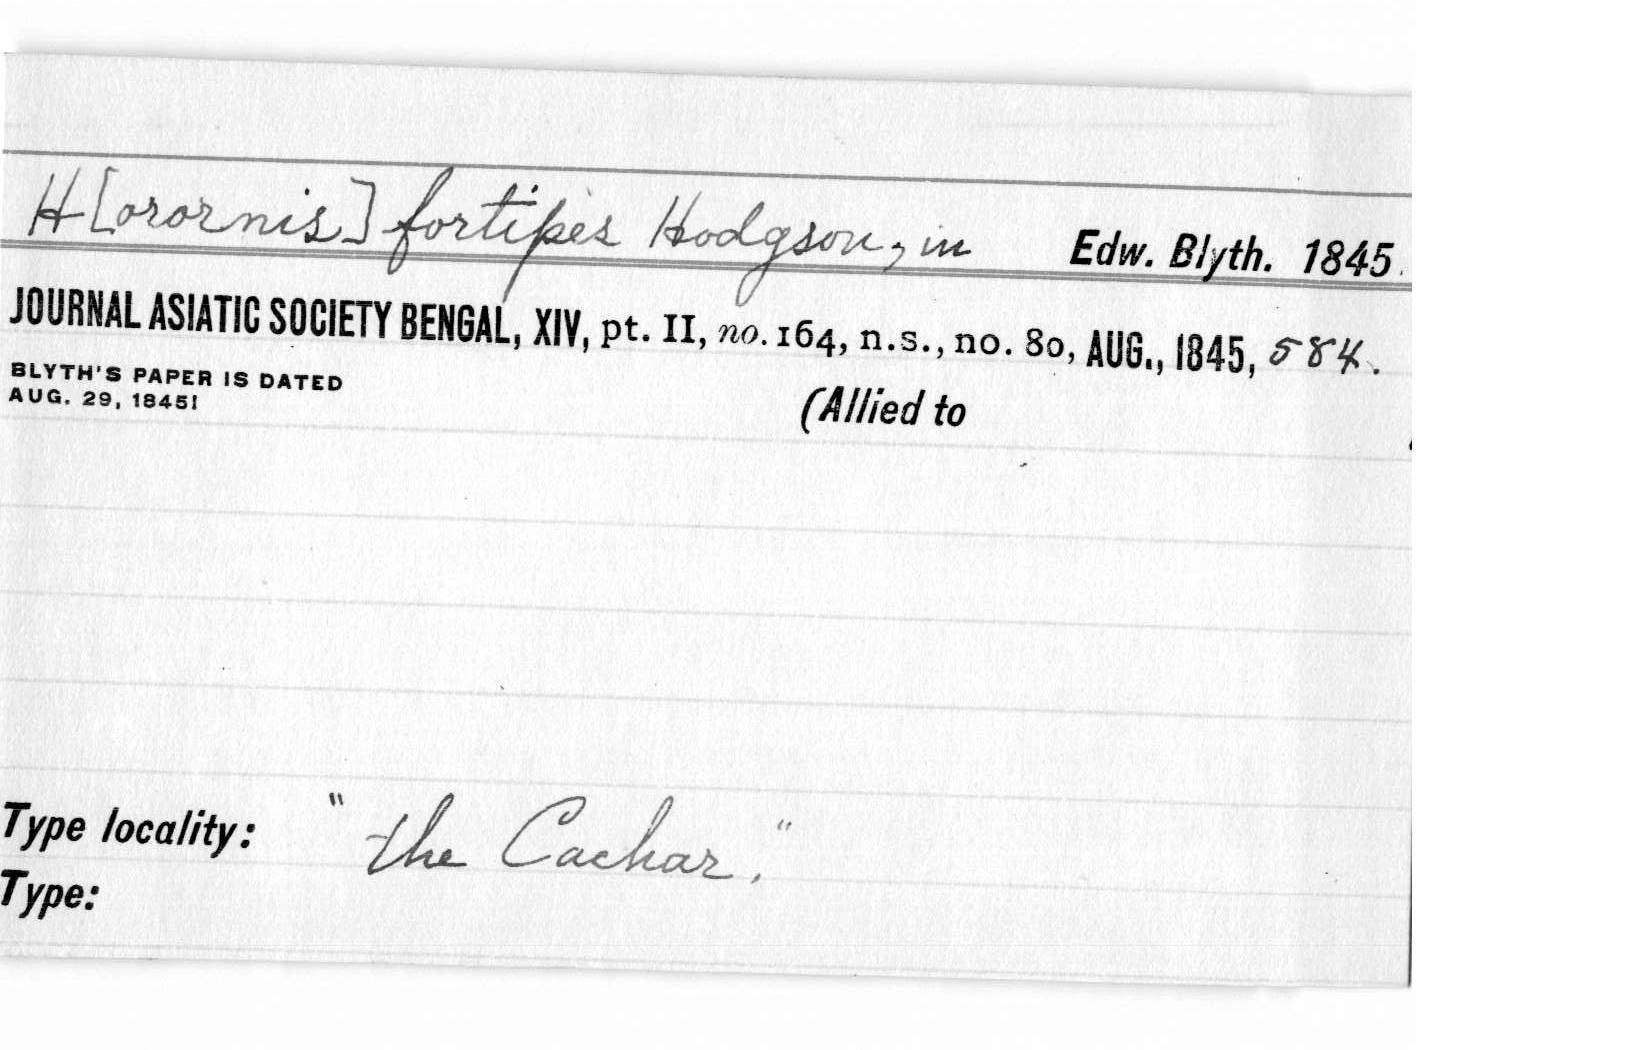 H[orornis] fortipes Hodgson, in Edw. Blyth. 1845.
JOURNAL ASIATIC SOCIETY BENGAL, XIV, pt. II, no. 164, n.s., no. 80, AUG., 1845, 584.
BLYTH'S PAPER IS DATED
AUG. 29, 1845!
(Allied to
Type locality: "the Cachar."
Type: